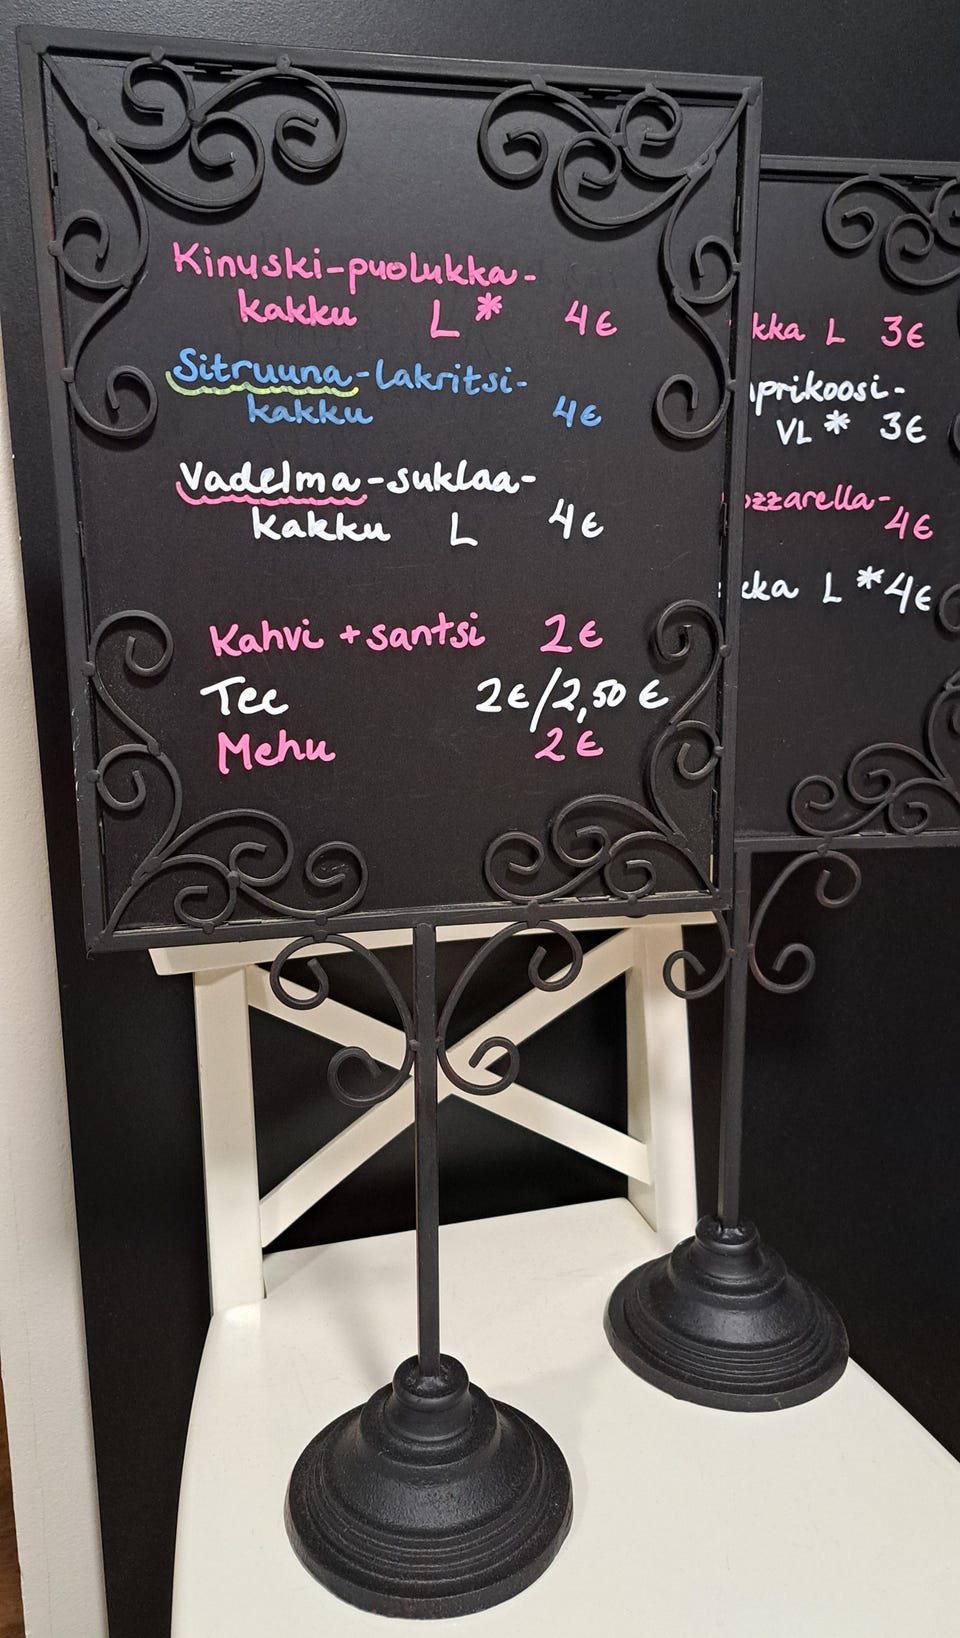 Kinuski-puolukka-
kakku L * 4€
Sitruuna-lakritsi-
kakku 4€
Vadelma-suklaa-
kakku L 4€
Kahvi + santsi 2€
Tee 2€/2,50 €
Mehu 2€
kka L 3€
aprikoosi-
VL * 3€
ozzarella-
4€
kka L * 4€